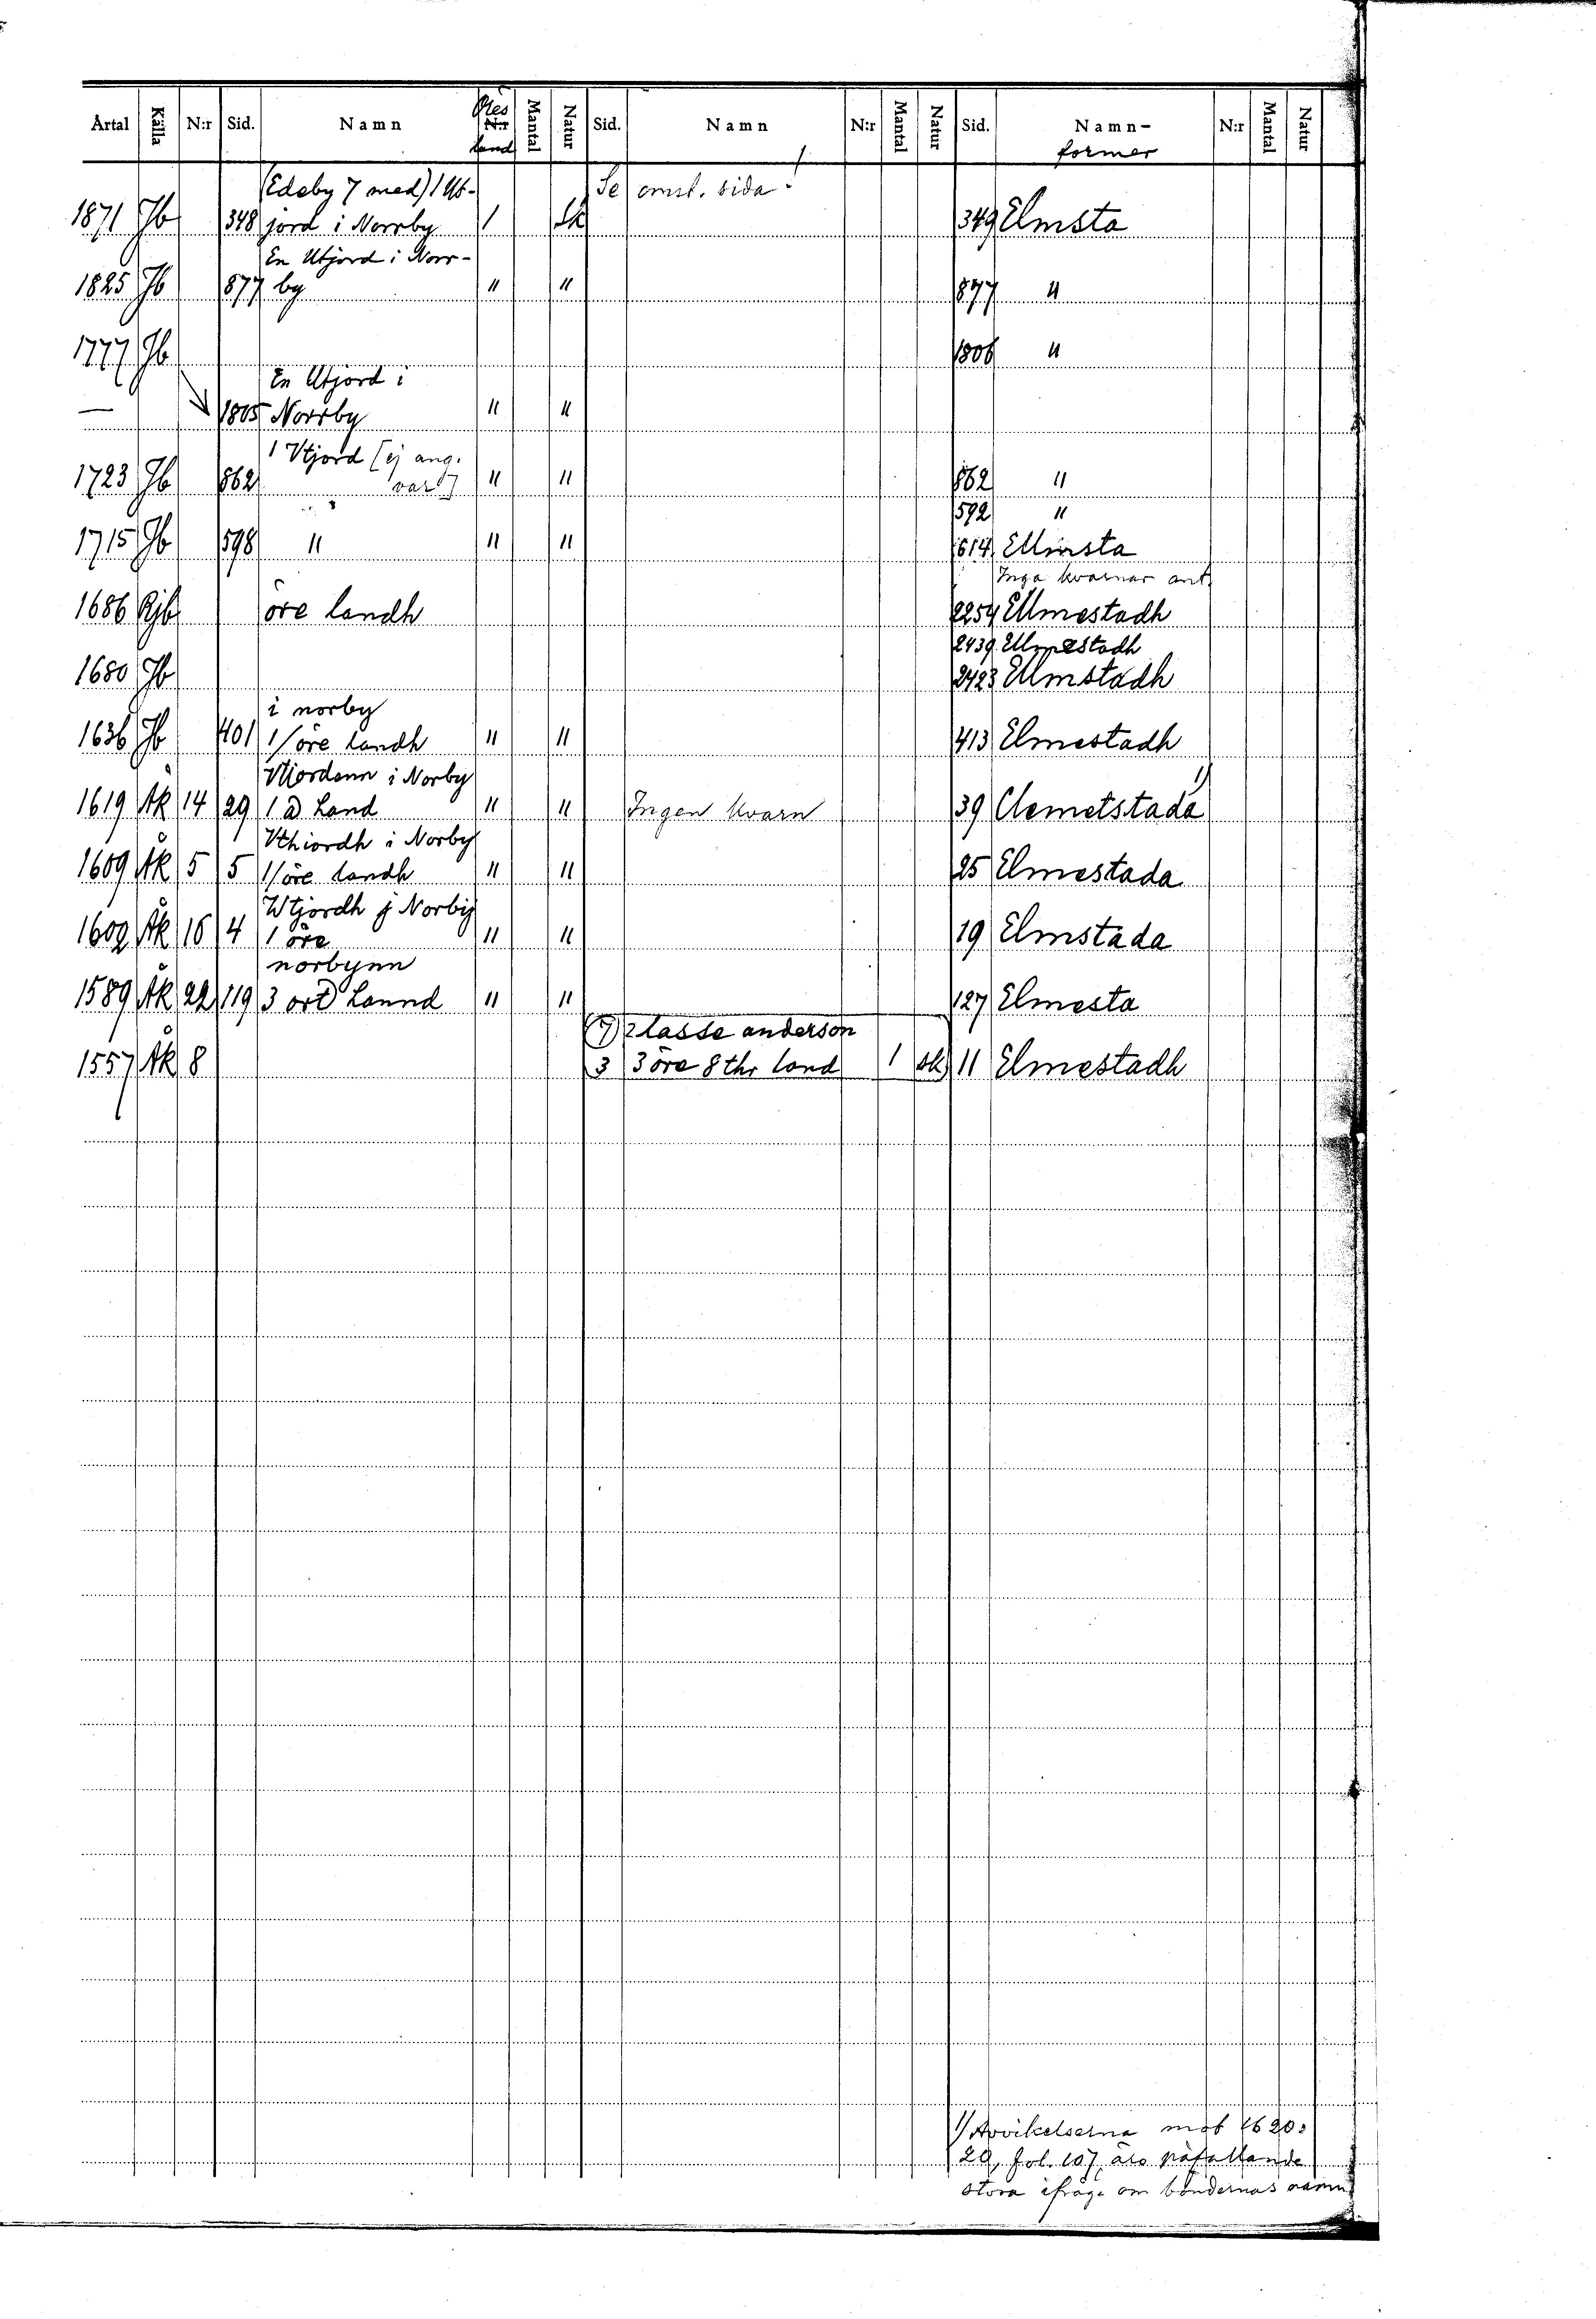 Årtal Källa N:r Sid. Namn N:r land Mantal Natur Sid. Namn N:r Mantal Natur Sid. Namn- former N:r Mantal Natur
(Edeby 7 med) 1 Ut- Se omst. sida!
1871 Jb 348 jord i Norrby 1 sk 349 Elmsta
En Utjord i Norr-
1825 Jb 877 by " " 877 "
1777 Jb 1806 "
En Utjord i
— 1805 Norrby " "
1 Vtjord [ej ang.
1723 Jb 862 var] " " 862 "
592 "
1715 Jb 598 " " " 614 Ellmsta
Inga kvarnar ant.
1686 Rjb öre landh 2254 Ellmestadh
2439 Ellmestadh
1680 Jb 2423 Elmstadh
i norby
1636 Jb 401 1/öre landh " " 413 Elmestadh
Vtiordenn i Norby 1)
1619 ÅK 14 29 1 a Land " " Ingen kvarn 39 Clemetstada
Vthiordh i Norby
1609 ÅK 5 5 1/öre landh " " 25 Elmestada
Wtjordh j Norbij
1602 ÅK 16 4 1 öre " " 19 Elmstada
norbynn
1589 ÅK 22 119 3 ort Lannd " " 127 Elmesta
lasse anderson
1557 ÅK 8 3 3 öre 8 thr land 1 sk 11 Elmestadh
1) Avvikelserna mot 1620:
20, fol. 107, äro påfallande
stora ifråga om böndernas namn